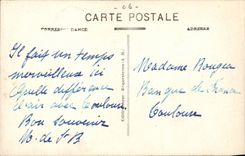 26
CARTE POSTALE
CORRESPONDANCE
ADRESSE
Il fait un temps
merveilleux ici
Quelle différence
avec Toulouse
Bon souvenir
M. de F B
Madame Rouger
Banque de France
Toulouse